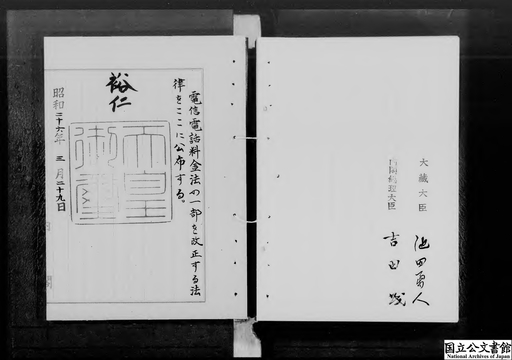 大蔵大臣 池田勇人
内閣総理大臣 吉田茂
電信電話料金法の一部を改正する法
律をここに公布する。
裕仁
天皇
御璽
昭和二十六年三月二十九日
国立公文書館
National Archives of Japan